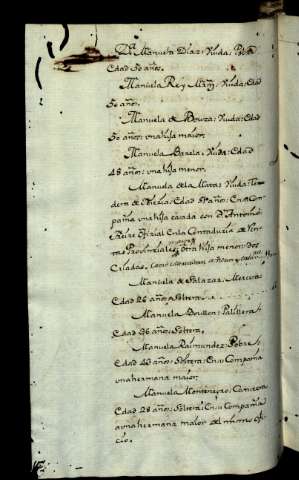 Dª Manuela Diaz: Viuda: Pobre
Edad 50 años.
Manuela Rey Viuda: Edad
50 años.
Manuela de Bouza: Viuda: Edad
50 años: una hija maior.
Manuela Varela: Viuda: Edad
48 años: una hija menor.
Manuela de la Mata: Viuda: Ten
dera de Edad 51 años: En su Com
pañia una hija casada con Dⁿ Antonio
Freire Ofizial en la Contaduria de Ren
tas Provinciales y otra hija menor: Dos
Criadas,
Manuela de Salazar
Edad 26 años: Soltera.
Manuela Brullon: Palillera:
Edad 36 años: Soltera,
Manuela Raimundez: Pobre,
Edad 40 años: Soltera: En su Compañia
una hermana maior
Manuela Montenegro: Costurera
Edad 28 años: Soltera: En su Compañia
a una hermana maior del mismo ofi
cio.